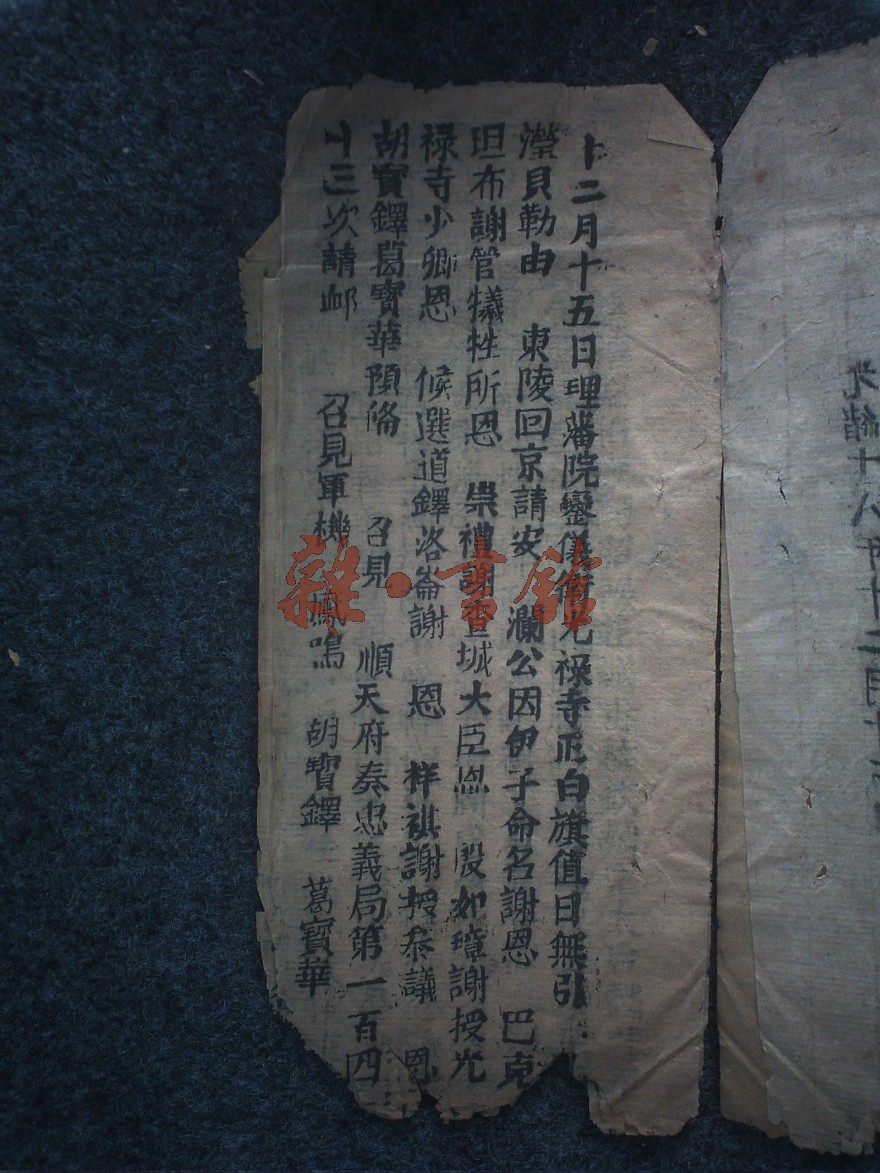 十二月十五日理藩院鑾儀衛光祿寺正白旗值日無引
瀅貝勒由 東陵回京請安 瀾公因伊子命名謝恩 巴克
坦布謝管犧牲所恩 崇禮謝查城大臣恩 殷如璋謝授光
祿寺少卿恩 候選道鐸洛崙謝 恩 祥祺謝授叅議 恩
胡寶鐸葛寶華預俻 召見 順天府奏忠義局第一百四
十三次請卹 召見軍機 鳳鳴 胡寶鐸 葛寶華
光緒十八年十二月十
雜·書館